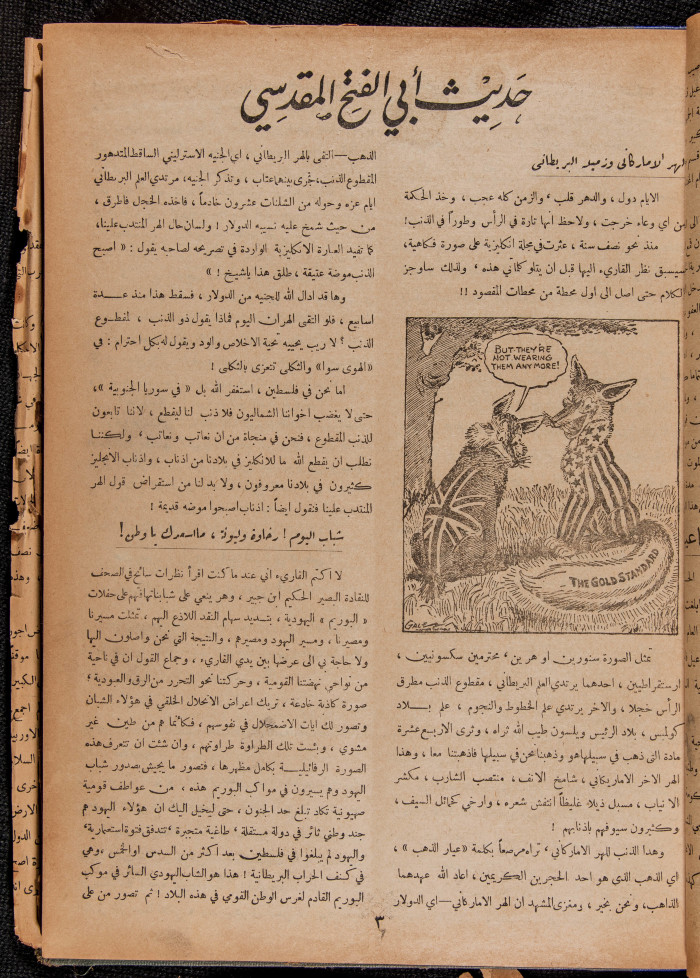 حديث أبي الفتح المقدسي
الهر الاماركاني وزميله البريطاني
الايام دول ، والدهر قلب ، والزمن كله عجب ، وخذ الحكمة
من اي وعاء خرجت ، ولاحظ انها تارة في الرأس وطوراً في الذنب!
منذ نحو نصف سنة ، عثرت في مجلة انكليزية على صورة فكاهية،
سيسبق نظر القاريء اليها قبل ان يتلو كلماتي هذه ، ولذلك ساوجز
الكلام حتى اصل الى اول محطة من محطات المقصود !!
BUT-THEY'RE
NOT WEARING
THEM ANY MORE!
THE GOLD STANDARD
GALE
تمثل الصورة سنورين او هرين ، محترمين سكسونيين ،
ارستقراطيين ، احدهما يرتدي العلم البريطاني ، مقطوع الذنب مطرق
الرأس خجلا ، والاخر يرتدي علم الخطوط والنجوم ، علم بلاد
كولمبس ، بلاد الرئيس ويلسون طيب الله ثراه ، وثرى الاربع عشرة
مادة التي ذهب في سبيلها وذهبنا نحن في سبيلها فاذهبتنا معا ، وهذا
الهر الاخر الاماريكاني ، شامخ الانف، منتصب الشارب ، مكشر
الا نياب ، مسبل ذيلا غليظاً انتفش شعره ، وارخي كحمائل السيف،
وكثيرون سيوفهم باذنابهم !
وهذا الذنب للهر الاماركاني ، تراه مرصعاً بكلمة «عيار الذهب» ،
اي الذهب الذي هو احد الحجرين الكريمين ، اعاد الله عهدهما
الذاهب، ونحن بخير ، ومغزى المشهد ان الهر الاماركاني — اي الدولار
الذهب — التقى بالهر البريطاني ، اي الجنيه الاسترليني الساقط المتدهور
المقطوع الذنب، فجرى بينهما عتاب ، وتذكر الجنيه، مرتدي العلم البريطاني
ايام عزه وحوله من الشلنات عشرون خادماً ، فاخذه الخجل فاطرق ،
من حيث شمخ عليه نسيبه الدولار ! ولسان حال الهر المنتدب علينا،
كما تفيد العبارة الانكليزية الواردة في تصريحه لصاحبه يقول : « اصبح
الذنب موضة عتيقة ، طلق هذا ياشيخ ! »
وها قد ادال الله للجنيه من الدولار ، فسقط هذا منذ عدة
اسابيع ، فلو التقى الهران اليوم فماذا يقول ذو الذنب ، لمقطوع
الذنب ؟ لا ريب يحييه تحية الاخلاص والود ويقول له بكل احترام : في
«الهوى سوا» والثكلى تتعزى بالثكلى !
اما نحن في فلسطين ، استغفر الله بل « في سوريا الجنوبية »،
حتى لا يغضب اخواننا الشماليون فلا ذنب لنا ليقطع ، لاننا تابعون
للذنب المقطوع ، فنحن في منجاة من ان نعاتب ونعاتب ، ولكننا
نطلب ان يقطع الله ما للانكليز في بلادنا من اذناب ، واذناب الانجليز
كثيرون في بلادنا معروفون ، ولا بد لنا من استقراض قول الهر
المنتدب علينا فنقول ايضاً : اذناب اصبحوا موضه قديمة !
شباب اليوم ! رخاوة وليونة ، مااسعدك يا وطن !
لا اكتم القاريء اني عند ما كنت اقرأ نظرات سائح في الصحف
للنقادة البصير الحكيم ابن جبير ، وهو ينعي على شبابنا تهافتهم على حفلات
« البوريم » اليهودية ، بتسديد سهام النقد اللاذع اليهم ، تمثلت مسيرنا
ومصيرنا ، ومسير اليهود ومصيرهم ، والنتيجة التي نحن واصلون اليها
ولا حاجة بي الى عرضها بين يدي القاريء ، وجماع القول ان في ناحية
من نواحي نهضتنا القومية ، وحركتنا نحو التحرر من الرق والعبودية ،
صورة كاذبة خادعة ، تريك اعراض الانحلال الخلقي في هؤلاء الشبان
وتصور لك ايات الاضمحلال في نفوسهم ، فكانما هم من طين غير
مشوي ، وبئست تلك الطراوة طراوتهم ، وان شئت ان تتعرف هذه
الصورة الرفائيلية بكامل مظهرها ، فتصور ما يجيش بصدور شباب
اليهود وهم يسيرون في مواكب البوريم هذه ، من عواطف قومية
صهيونية تكاد تبلغ حد الجنون ، حتى ليخيل اليك ان هؤلاء اليهود هم
جند وطني ثائر في دولة مستقلة ، طاغية متجبرة ، تتدفق فتوة استعمارية ،
واليهود لم يبلغوا في فلسطين بعد اكثر من السدس او الخمس ، وهي
في كنف الحراب البريطانية ! هذا هو الشباب اليهودي السائر في موكب
البوريم القادم لغرس الوطن القومي في هذه البلاد ! ثم تصور من على
٣